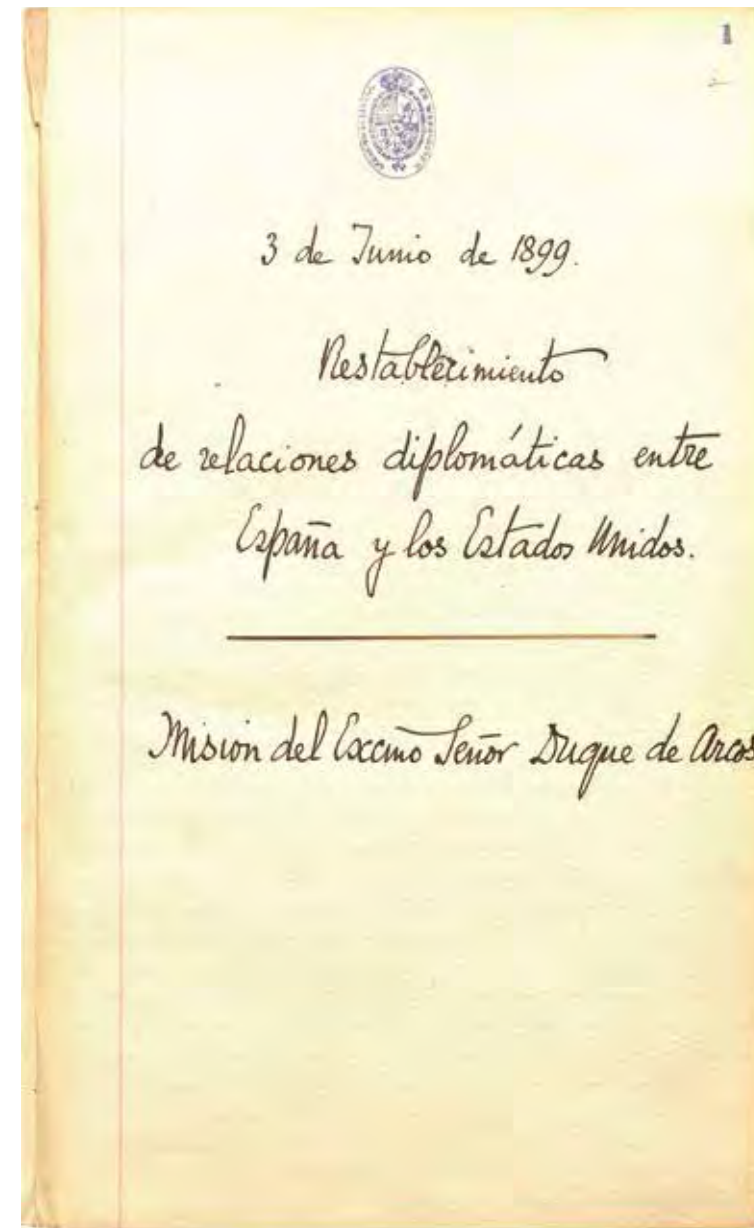 1
3 de Junio de 1899.
Restablecimiento
de relaciones diplomáticas entre
España y los Estados Unidos.
Misión del Excmo Señor Duque de Arcos